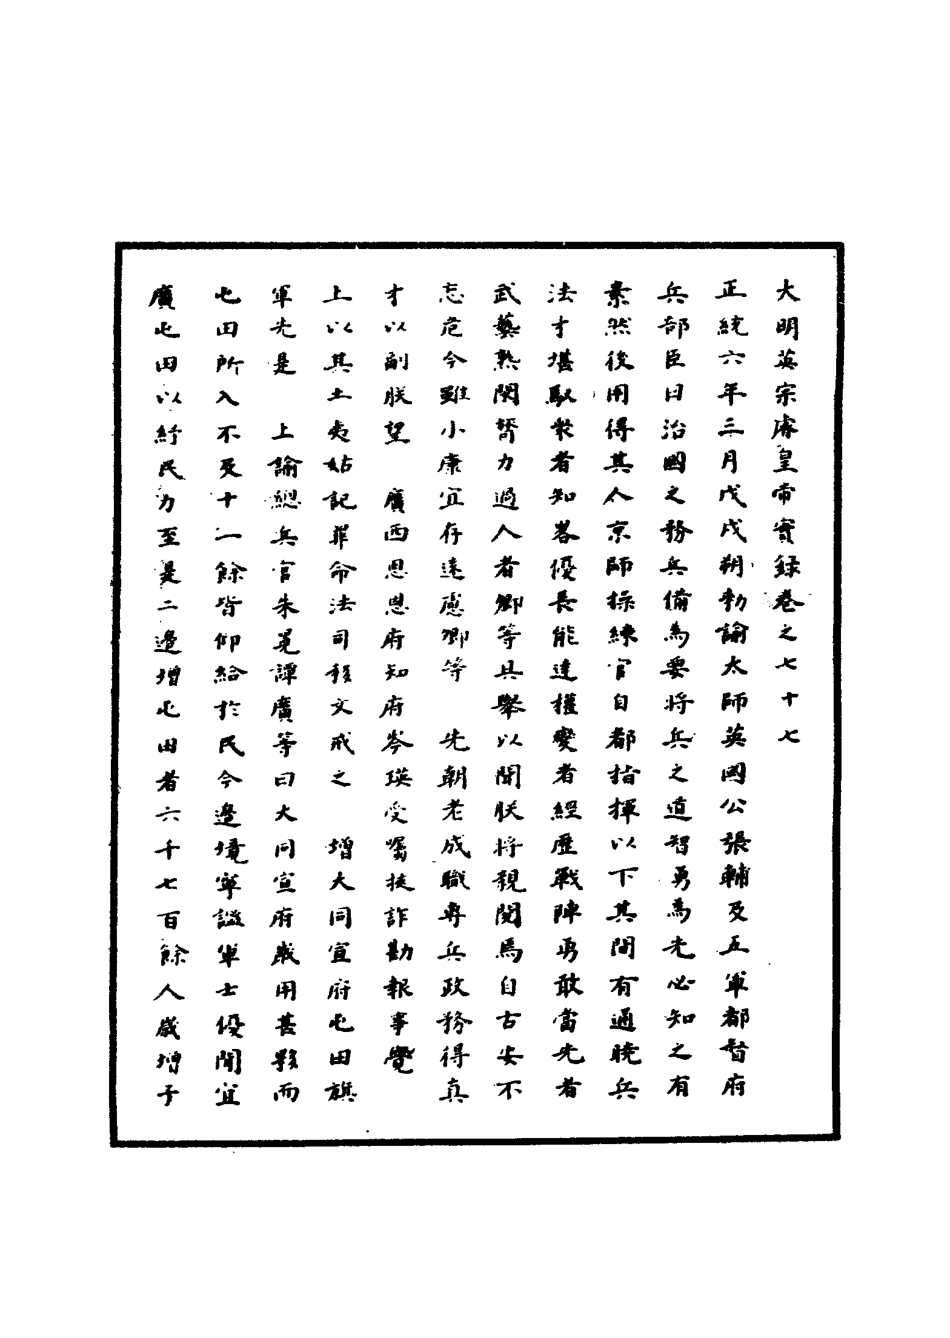 大明英宗睿皇帝實錄卷之七十七
正統六年三月戊戌朔勑諭太師英國公張輔及五軍都督府
兵部臣曰治國之務兵備為要將兵之道智勇為先必知之有
素然後用得其人京師操練官自都指揮以下其間有通曉兵
法才堪馭衆者知畧優長能達權變者經歷戰陣勇敢當先者
武藝熟閑膂力過人者卿等具舉以聞朕將親閱焉自古安不
忘危今雖小康宜存遠慮卿等　先朝老成職專兵政務得真
才以副朕望　廣西思恩府知府岑瑛受囑挾詐勘報事覺
上以其土夷姑記罪命法司移文戒之　增大同宣府屯田旗
軍先是　上諭總兵官朱冕譚廣等曰大同宣府歲用甚夥而
屯田所入不及十一餘皆仰給於民今邊境寧謐軍士優閒宜
廣屯田以紓民力至是二邊增屯田者六千七百餘人歲增子